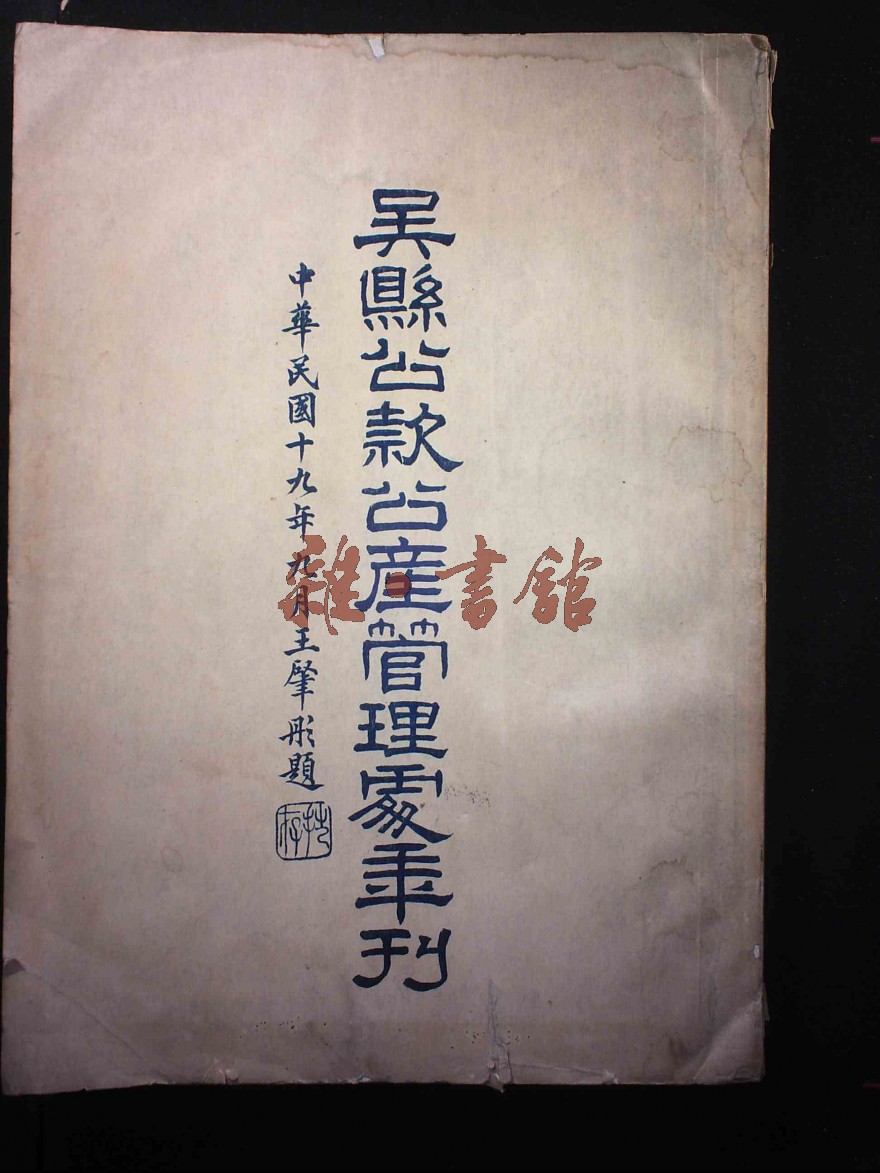 吴縣公款公產管理處年刊
中華民國十九年九月王肇彤題
雜書館